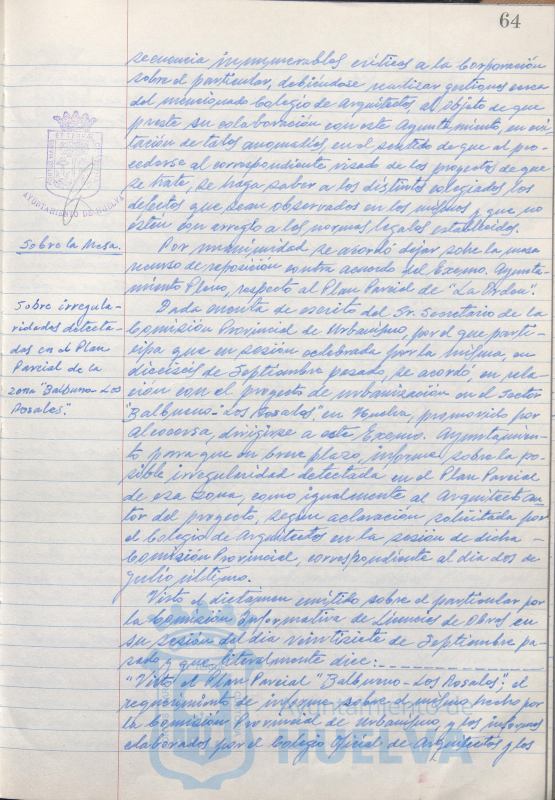 64
secuencia innumerables críticas a la Corporación
sobre el particular, debiéndose realizar gestiones cerca
del mencionado Colegio de Arquitectos al objeto de que
preste su colaboración con este Ayuntamiento, en evi-
tación de tales anomalías en el sentido de que al pro-
cederse al correspondiente visado de los proyectos de que
se trate, se haga saber a los distintos colegiados los
defectos que sean observados en los mismos y que no
estén con arreglo a las normas legales establecidas.
AYUNTAMIENTO DE HUELVA
Sobre la Mesa.
Por unanimidad se acordó dejar sobre la mesa
recurso de reposición contra acuerdo del Excmo. Ayunta-
miento Pleno, respecto al Plan Parcial de "La Orden".
Sobre irregula-
ridades detecta-
das en el Plan
Parcial de la
zona "Balbueno-Los
Rosales".
Dada cuenta de escrito del Sr. Secretario de la
Comisión Provincial de Urbanismo, por el que parti-
cipa que en sesión celebrada por la misma, en
dieciséis de Septiembre pasado, se acordó, en rela-
ción con el proyecto de urbanización en el Sector
"Balbueno-Los Rosales", en Huelva, promovido por
dirigirse a este Excmo. Ayuntamien-
to para que en breve plazo, informe sobre la po-
sible irregularidad detectada en el Plan Parcial
de esa zona, como igualmente al Arquitecto au-
tor del proyecto, según aclaración solicitada por
el Colegio de Arquitectos en la sesión de dicha
Comisión Provincial, correspondiente al día dos de
Julio último.
Visto el dictamen emitido sobre el particular por
la Comisión Informativa de Licencias de Obras en
su sesión del día veintisiete de Septiembre pa-
sado y que literalmente dice:
"Visto el Plan Parcial "Balbueno-Los Rosales"; el
requerimiento de informe sobre el mismo hecho por
la Comisión Provincial de Urbanismo y los informes
elaborados por el Colegio Oficial de Arquitectos y los
Ayuntamiento de
HUELVA